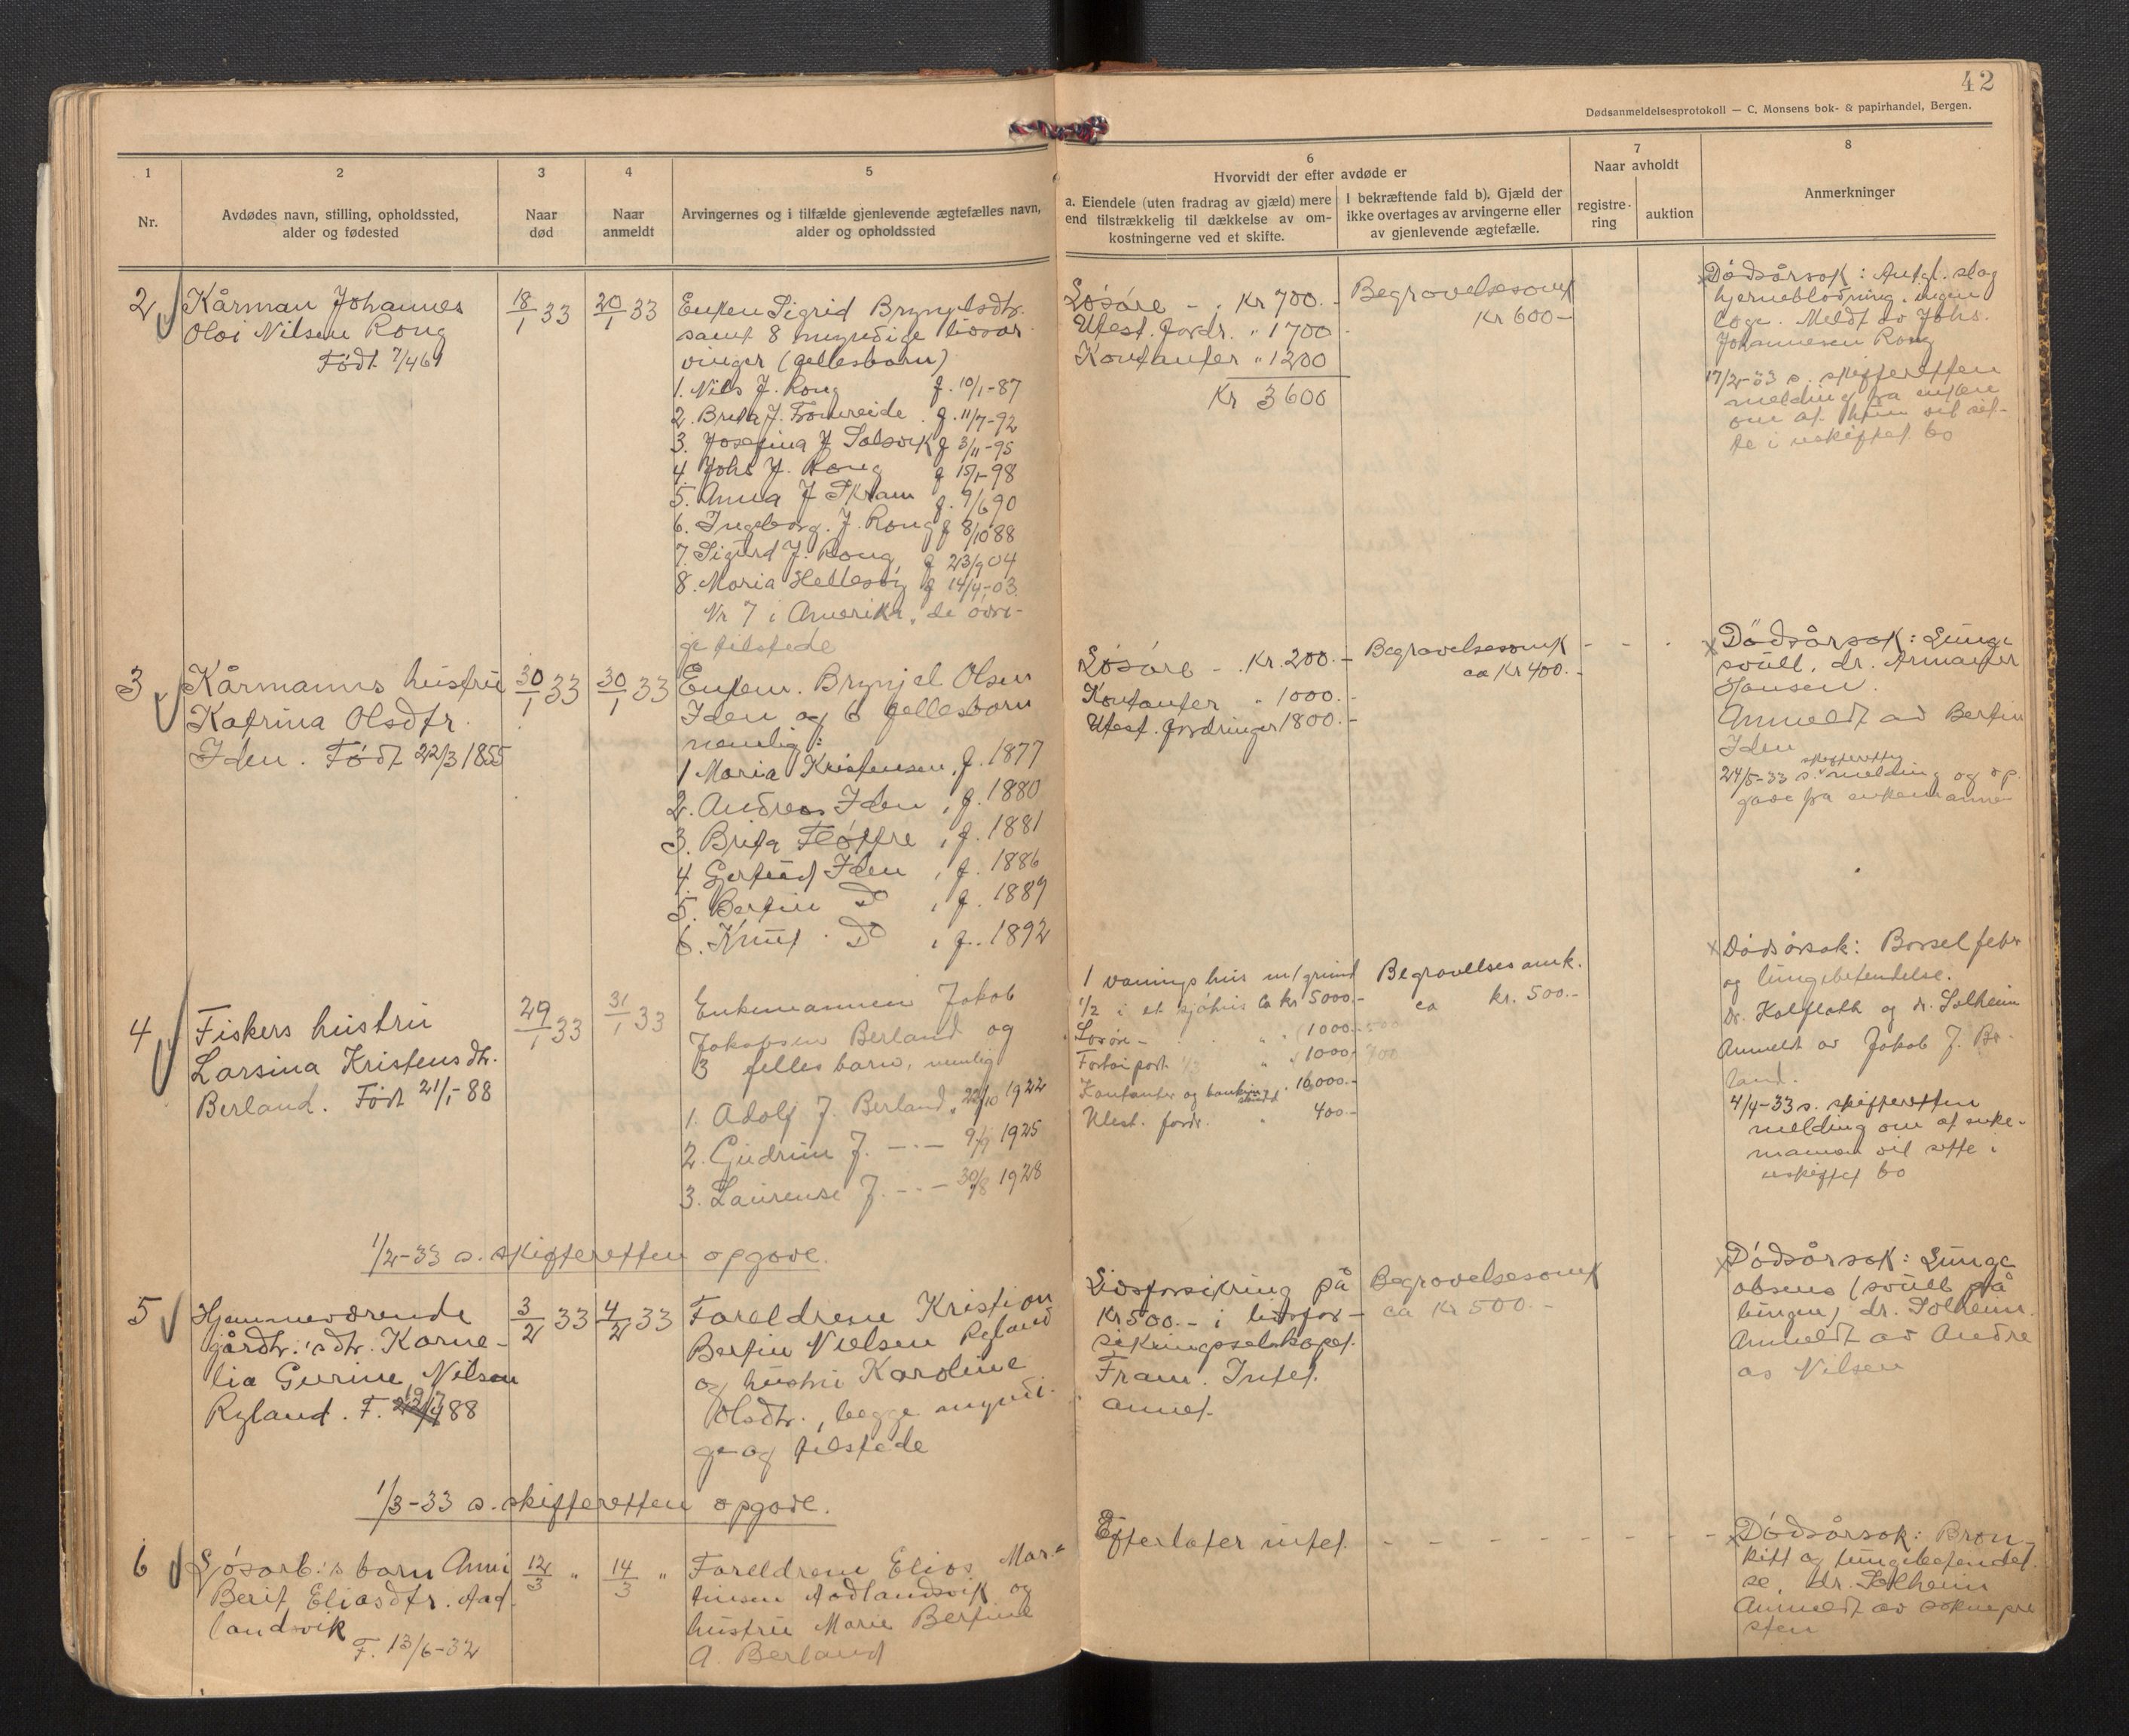 42
Dødsanmeldelsesprotokoll — C. Monsens bok- & papirhandel, Bergen.
1
Nr.
2
Avdødes navn, stilling, opholdssted,
alder og fødested
3
Naar
død
4
Naar
anmeldt
5
Arvingernes og i tilfælde gjenlevende ægtefælles navn,
alder og opholdssted
6
Hvorvidt der efter avdøde er
a. Eiendele (uten fradrag av gjæld) mere
end tilstrækkelig til dækkelse av om-
kostningerne ved et skifte.
I bekræftende fald b). Gjæld der
ikke overtages av arvingerne eller
av gjenlevende ægtefælle.
7
Naar avholdt
registre-
ring
auktion
8
Anmerkninger
2
Kårman Johannes
Oloi Nilsen Rong
Født 7/46
18/1 33
20/1 33
Enken Sigrid Brynjelsdtr.
samt 8 myndige livsar
vinger (fellesbarn)
1. Nils J. Rong f. 10/1-87
2. Brita J. Fromreide f. 11/7-92
3. Josefina J Solsvik f 3/11-95
4. Johs J. Rong f 15/1-98
5. Anna J Skram f. 9/6 90
6. Ingeborg. J. Rong f 8/10 88
7. Sigurd J. Rong f 23/9 04
8. Maria Hellesøy f 14/4-03.
Nr 7 i Amerika, de øvri-
ge tilstede
Løsøre - . Kr 700.-
Utest. fordr. " 1700-
Kontanter " 1200
Kr 3600
Begravelsesomk
Kr 600-
Dødsårsak: Antgl. slag
hjerneblødning. ingen
læge. Meldt av Johs.
Johannesen Rong
17/2-33 s. skifteretten
melding fra enken
om at hun vil sit-
te i uskiftet bo
3
Kårmanns hustru
Katrina Olsdtr.
Iden. Født 22/3 1855
30/1 33
30/1 33
Enkem. Brynjel Olsen
Iden og 6 fellesbarn
nemlig:
1 Maria Kristensen, f. 1877
2. Andreas Iden, f. 1880
3. Brita Fløttre, f. 1881
4. Gertrud Iden, f. 1886
5. Bertin Do, f. 1889
6. Knut Do, f. 1892
Løsøre - . Kr. 200.-
Kontanter " 1000.-
Utest. fordringer 1800.-
Begravelsesomk
ca Kr 400.-
Dødsårsak: Lunge
svull. dr. Armauer
Hansen.
Anmeldt av Bertin
Iden
skifteretten
24/5-33 s. melding og op.
gave fra enkemannen
4
Fiskers hustru
Larsina Kristensdtr.
Berland. Født 21/1-88
29/1 33
31/1 33
Enkemannen Jakob
Jakobsen Berland og
3 felles barn, nemlig
1. Adolf J. Berland, 22/10 1922
2. Gudrun J. -"- 9/9 1925
3. Laurense J. -"- 30/8 1928
1 vånings hus m/grund
1/2 i et sjøhus ca kr 5000.-
Løsøre - " 1000.-
" 1000.-
Kontanter og bankinnskudd " 16000.-
Utest. fordr. " 400.-
Begravelsesomk.
ca kr. 500.-
Dødsårsak: Barselfeber
og lungebetendelse.
Dr. Kolfloth og dr. Solheim
Anmeldt av Jakob J. Ber
land.
4/4-33 s. skifteretten
melding om at enke-
mannen vil sitte i
uskiftet bo
1/2-33 s. skifteretten opgave.
5
Hjemmeværende
gårdbr.'s dtr. Korne-
lia Gurine Nilsen
Ryland. F. 19/7 88
3/2 33
4/2 33
Foreldrene Kristian
Bertin Nielsen Ryland
og hustru Karoline
Olsdtr., begge myndi-
ge og tilstede
Livsforsikring på
Kr 500.- i livsfor-
sikringsselskapet
Fram. Intet
annet.
Begravelsesomk
ca Kr 500.-
Dødsårsak: Lunge
absess (svull på
lungen) dr. Solheim.
Anmeldt av Andre
as Nilsen
1/3-33 s. skifteretten opgave.
6
Sjøsarb.'s barn Anni
Berit Eliasdtr. Aad
landsvik
F. 13/6-32
12/3 "
14/3 "
Foreldrene Elias Mar-
tinsen Aadlandsvik og
hustru Marie Bertine
A. Berland
Efterlater intet. - - - - - - -
Dødsårsak: Bron-
kitt og lungebetendel.
se, dr. Solheim
Anmeldt av sognepre
sten